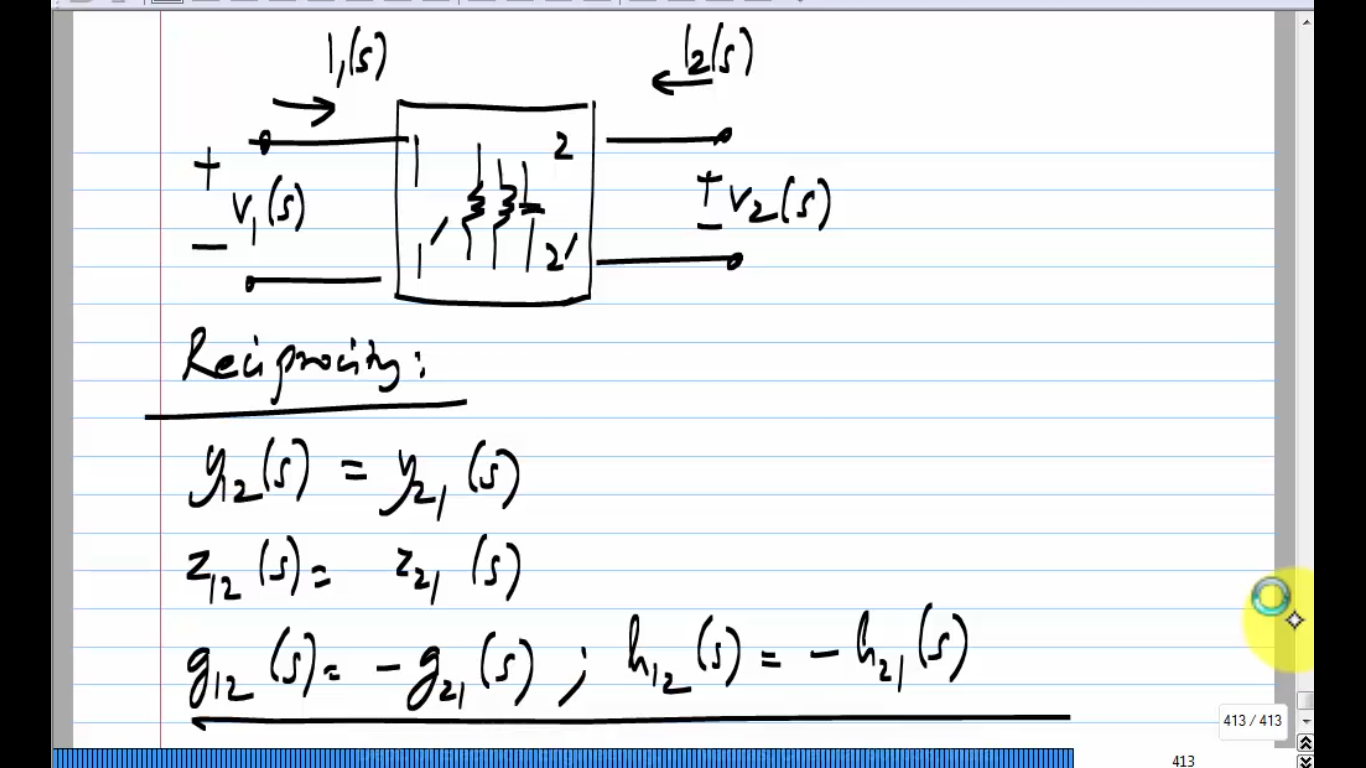 I₁(s) I₂(s)
+ 1 2 +
V₁(s) V₂(s)
− 1′ 2′ −
Reciprocity:
y₁₂(s) = y₂₁(s)
z₁₂(s) = z₂₁(s)
g₁₂(s) = −g₂₁(s) ; h₁₂(s) = −h₂₁(s)
413 / 413
413